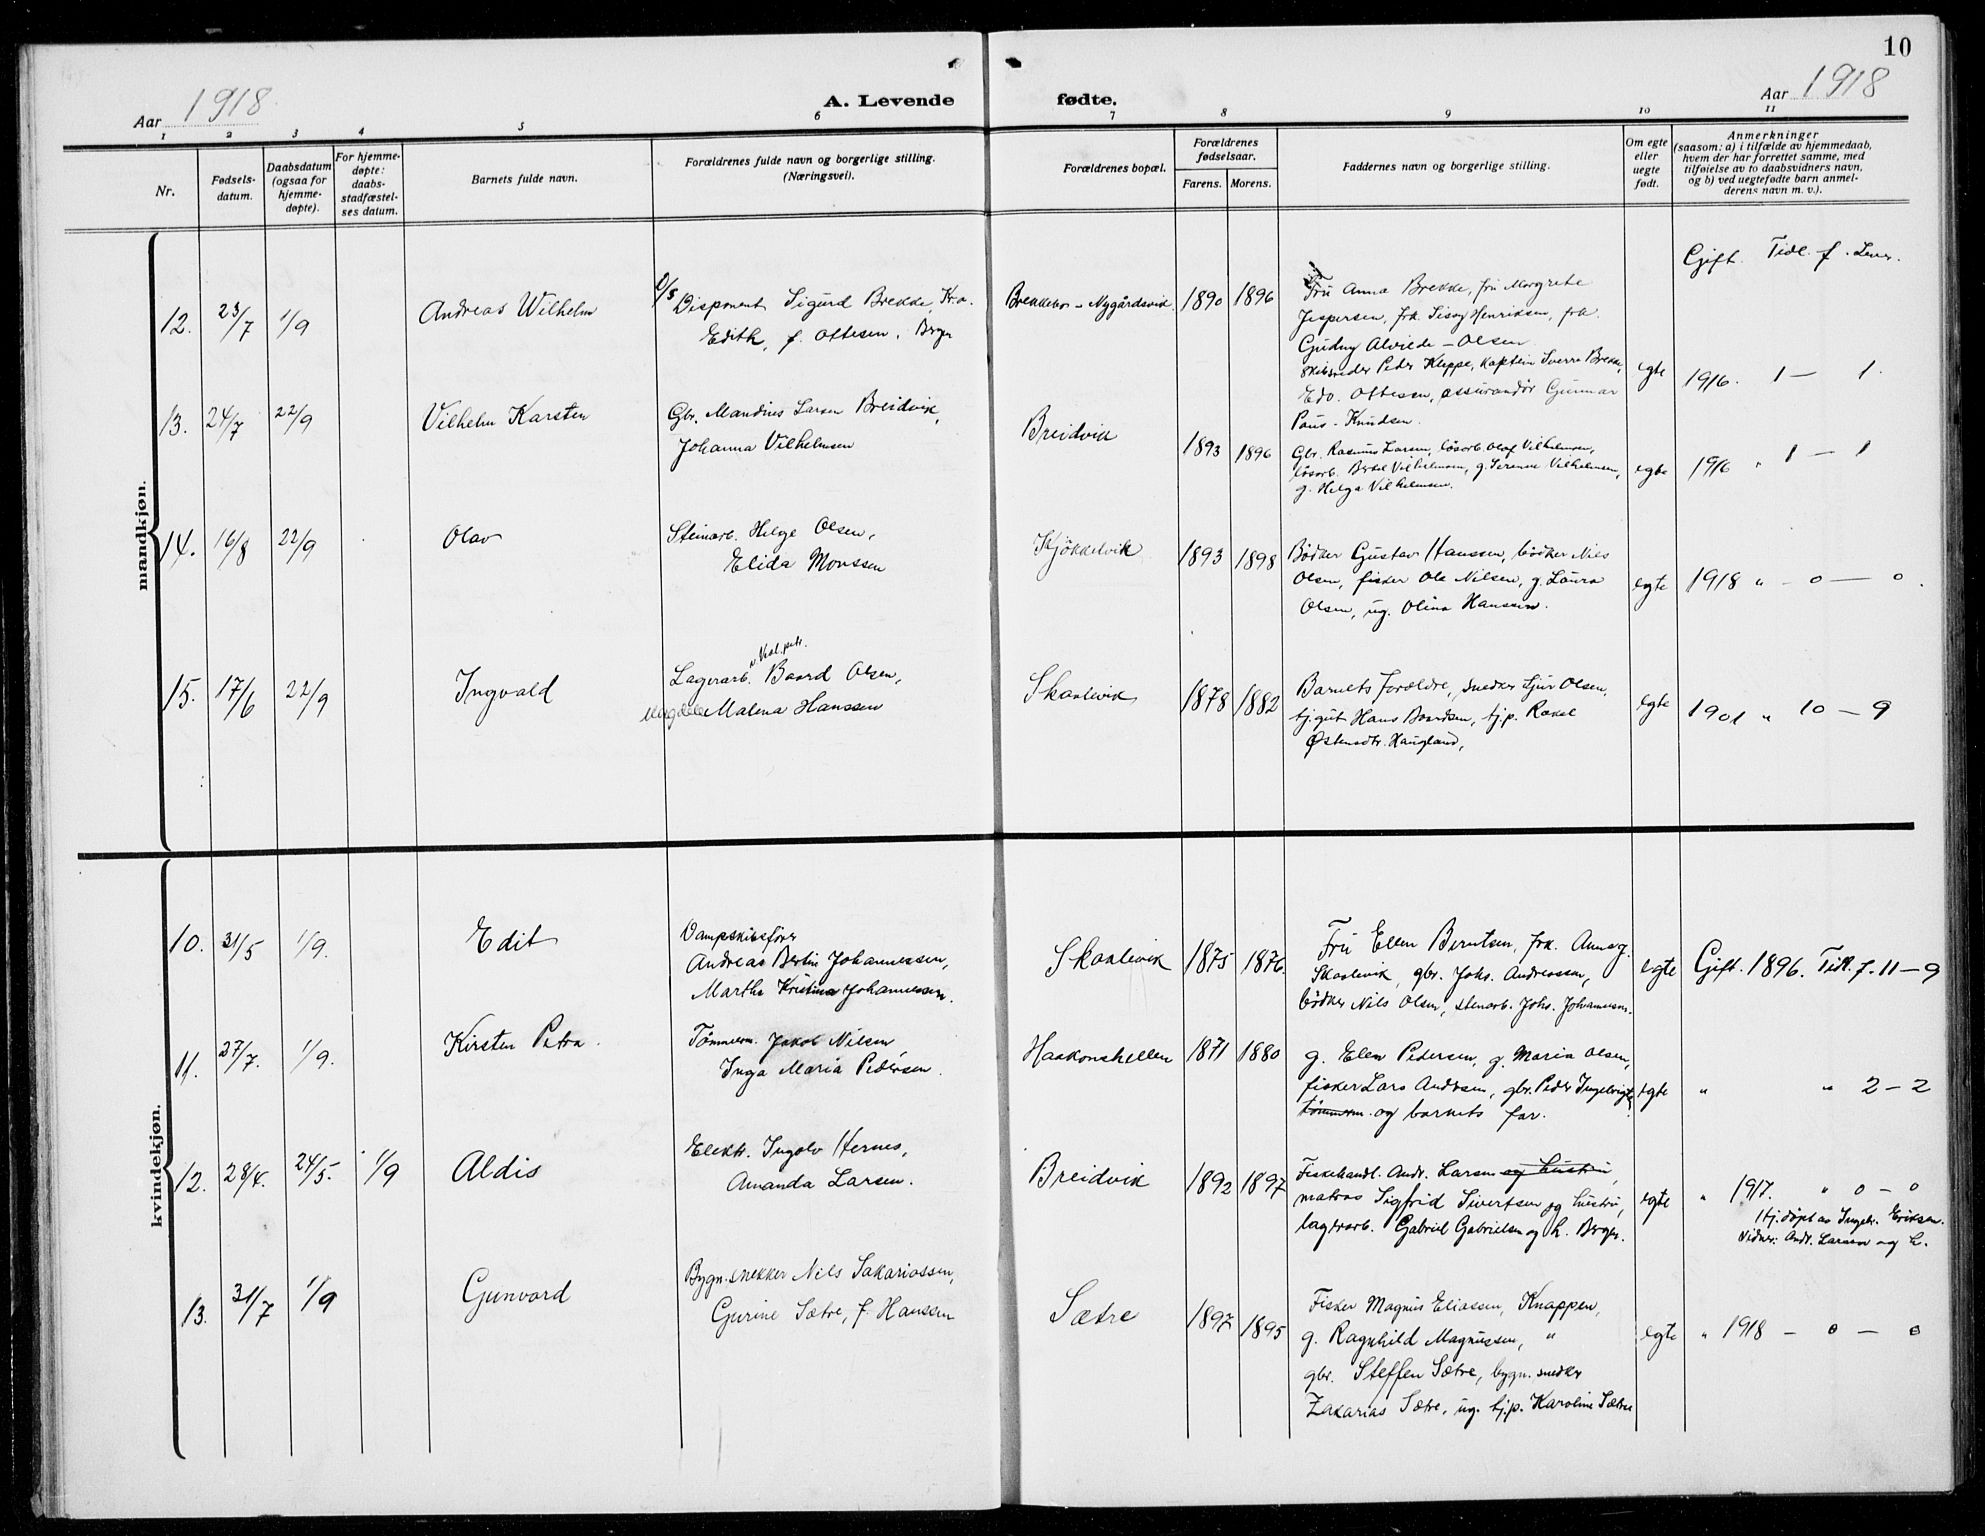 10
Aar 1918
A. Levende fødte.
Aar 1918
1 2 3 4 5 6 7 8 9 10 11
Nr.
Fødsels-
datum.
Daabsdatum
(ogsaa for
hjemme-
døpte).
For hjemme-
døpte:
daabs-
stadfæstel-
ses datum.
Barnets fulde navn.
Forældrenes fulde navn og borgerlige stilling.
(Næringsvei).
Forældrenes bopæl.
Forældrenes
fødselsaar.
Farens. Morens.
Faddernes navn og borgerlige stilling.
Om egte
eller
uegte
født.
Anmerkninger
(saasom: a) i tilfælde av hjemmedaab,
hvem der har forrettet samme, med
tilføielse av to daabsvidners navn,
og b) ved uegtefødte barn anmel-
derens navn m. v.).
mandkjøn.
Gift. Tidl. f. Lever.
12. 23/7 1/9
Andreas Wilhelm
Disponent Sigurd Brekke, Kra.
Edith, f. Ottesen, Bergen
Brekkebo - Nygårdsvik 1890 1896
Fru Anna Brekke, fru Margrete
Jespersen, frk. Henriksen, frk.
Gudny Alvilde - Olsen
skibsreder Peder Kleppe, Kaptein Sverre Brekke,
Edv. Ottesen, assurandør Gunnar
Paus - Knudsen.
egte 1916. 1 — 1.
13. 24/7 22/9
Vilhelm Karsten
Gbr. Mandius Larsen Breidvik,
Johanna Vilhelmsen
Breidvik 1893 1896
Gbr. Rasmus Larsen, løsarb. Olaf Vilhelmsen,
løsarb. Bertel Vilhelmsen, g. Serenne Vilhelmsen,
g. Helga Vilhelmsen.
egte 1916 " 1 — 1
14. 16/8 22/9
Olav
Steinarb. Helge Olsen,
Elida Monssen
Kjøkkelvik 1893 1898
Bødker Gustav Hanssen, bødker Nils
Olsen, fisker Ole Nilsen, g. Laura
Olsen, ug. Olina Hanssen.
egte 1918 " — 0 — 0.
15. 17/6 22/9
Ingvald
Lagerarb. v. Vest. petr. Baard Olsen,
Malena Hanssen
Skaalevik 1878 1882
Barnets forældre, snedker Sjur Olsen,
tj.gut Hans Baardsen, tj.p. Rakel
Østensdtr. Haugland,
egte 1901 " 10 — 9
kvindekjøn.
10. 31/5 1/9.
Edit
Dampskibsfører
Andreas Bertin Johannessen,
Martha Kristina Johannessen.
Skaalevik 1875 1876.
Fru Ellen Berntsen, frk. Anna g.
Skaalevik, gbr. Johs. Andreassen,
bødker Nils Olsen, stenarb. Johs. Johannessen.
egte Gift. 1896. Tidl. f. 11 — 9
11. 27/7. 1/9.
Kirsten Petra.
Tømmerm. Jakob Nilsen
Inga Maria Pedersen.
Haakonshellen 1871 1880
g. Elen Pedersen, g. Maria Olsen,
fisker Lars Andersen, gbr. Peder Ingebrigts.
tømmerm. og barnets far.
egte " " 2 — 2
12. 28/4. 24/5. 1/9
Aldis
Elektr. Ingolv Hernes,
Amanda Larsen.
Breidvik 1892 1897
Fiskehandl. Andr. Larsen og hustru,
matros Sigfrid Sivertsen og hustru,
lagerarb. Gabriel Gabrielsen og h. Bergen.
egte " 1917. " 0 — 0
Hj. døpt av Ingebr. Eriksen.
Vidner: Andr. Larsen og h.
13. 31/7 1/9
Gunvord
Bygn.snekker Nils Sakariassen,
Gurine Sætre, f. Hanssen
Sætre 1897 1895
Fisker Magnus Eliassen, Knappen,
g. Ragnhild Magnussen, "
gbr. Steffen Sætre, bygn. snedker
Zakarias Sætre, ug. tj.p. Karoline Sætre
egte " 1918 — 0 — 0